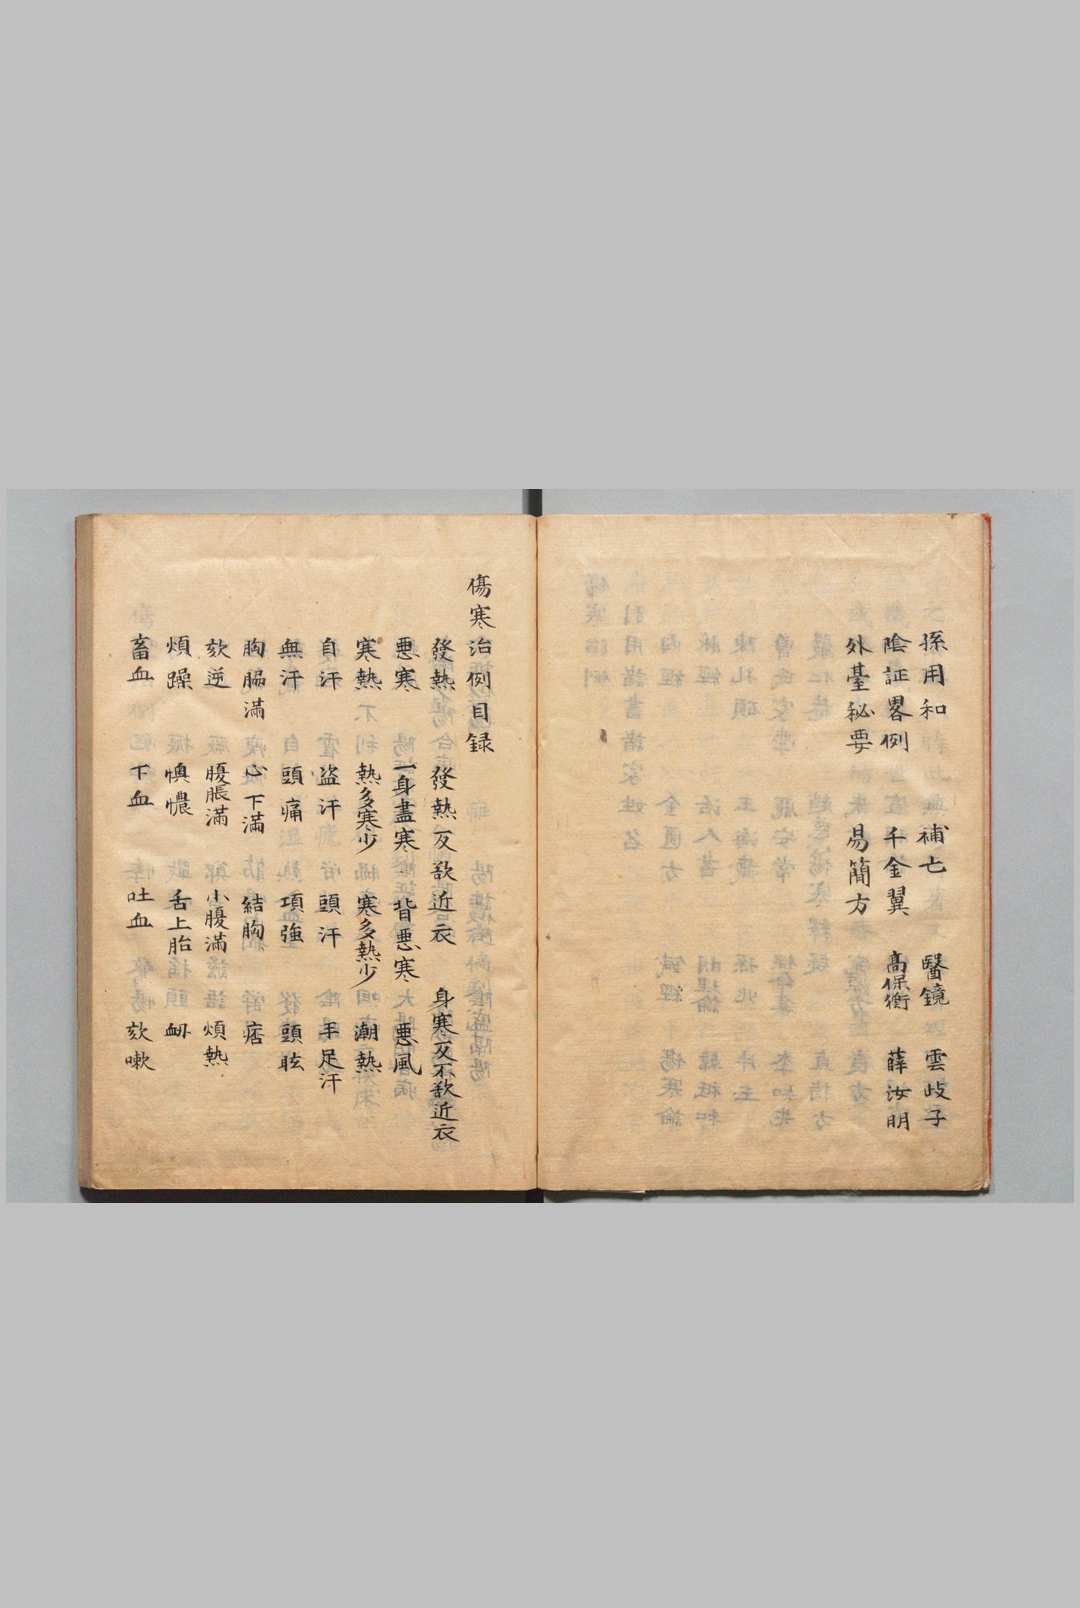 孫用和 補亡 醫鏡 雲歧子
陰証畧例 千金翼 高保衡 薛汝明
外臺秘要 易簡方
傷寒治例目録
發熱 發熱反欲近衣 身寒反不欲近衣
惡寒 一身盡寒 背惡寒 惡風
寒熱 熱多寒少 寒多熱少 潮熱
自汗 盗汗 頭汗 手足汗
無汗 頭痛 項強 頭眩
胸脇滿 心下滿 結胸 痞
欬逆 腹脹滿 小腹滿 煩熱
煩躁 懊憹 舌上胎 衂
畜血 下血 吐血 欬嗽